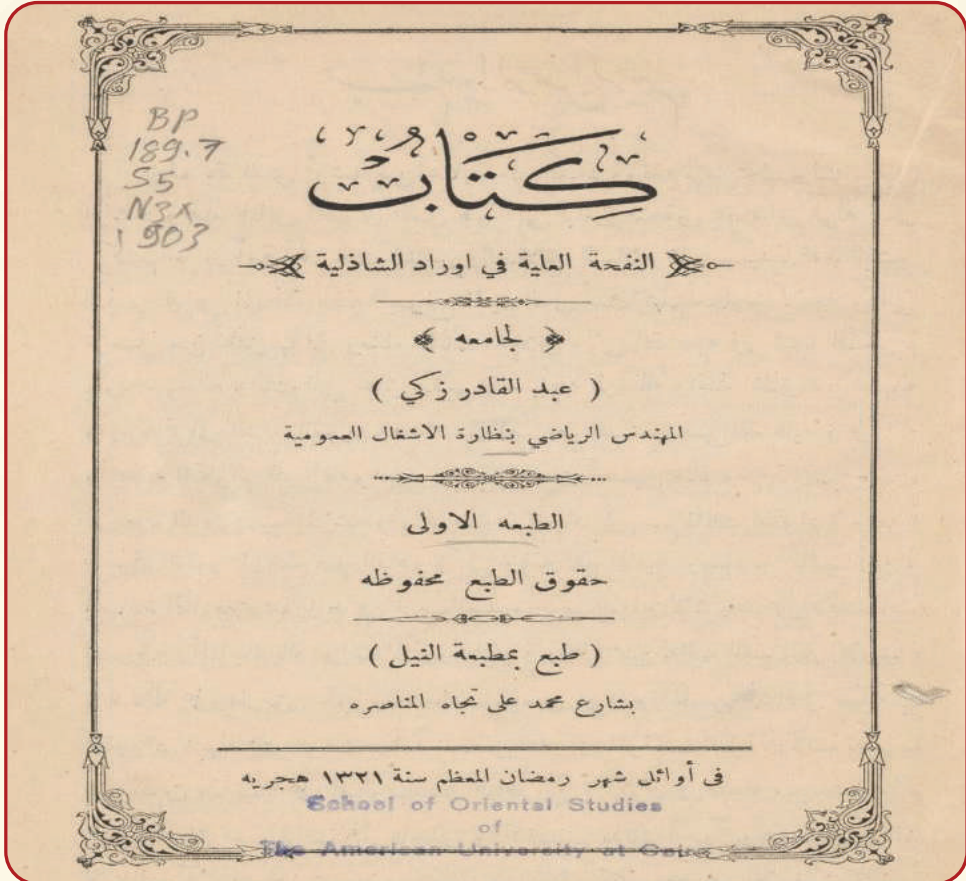 BP
189.7
S5
N3X
1903
كتابُ
النفحة العلية في اوراد الشاذلية
لجامعه
( عبد القادر زكي )
المهندس الرياضي بنظارة الاشغال العمومية
الطبعه الاولى
حقوق الطبع محفوظه
( طبع بمطبعة النيل )
بشارع محمد على تجاه المناصره
فى أوائل شهر رمضان المعظم سنة ١٣٢١ هجريه
School of Oriental Studies
of
The American University at Cairo